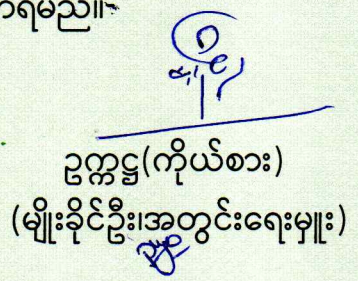 ဥက္ကဋ္ဌ(ကိုယ်စား)
(မျိုးခိုင်ဦး၊အတွင်းရေးမှူး)